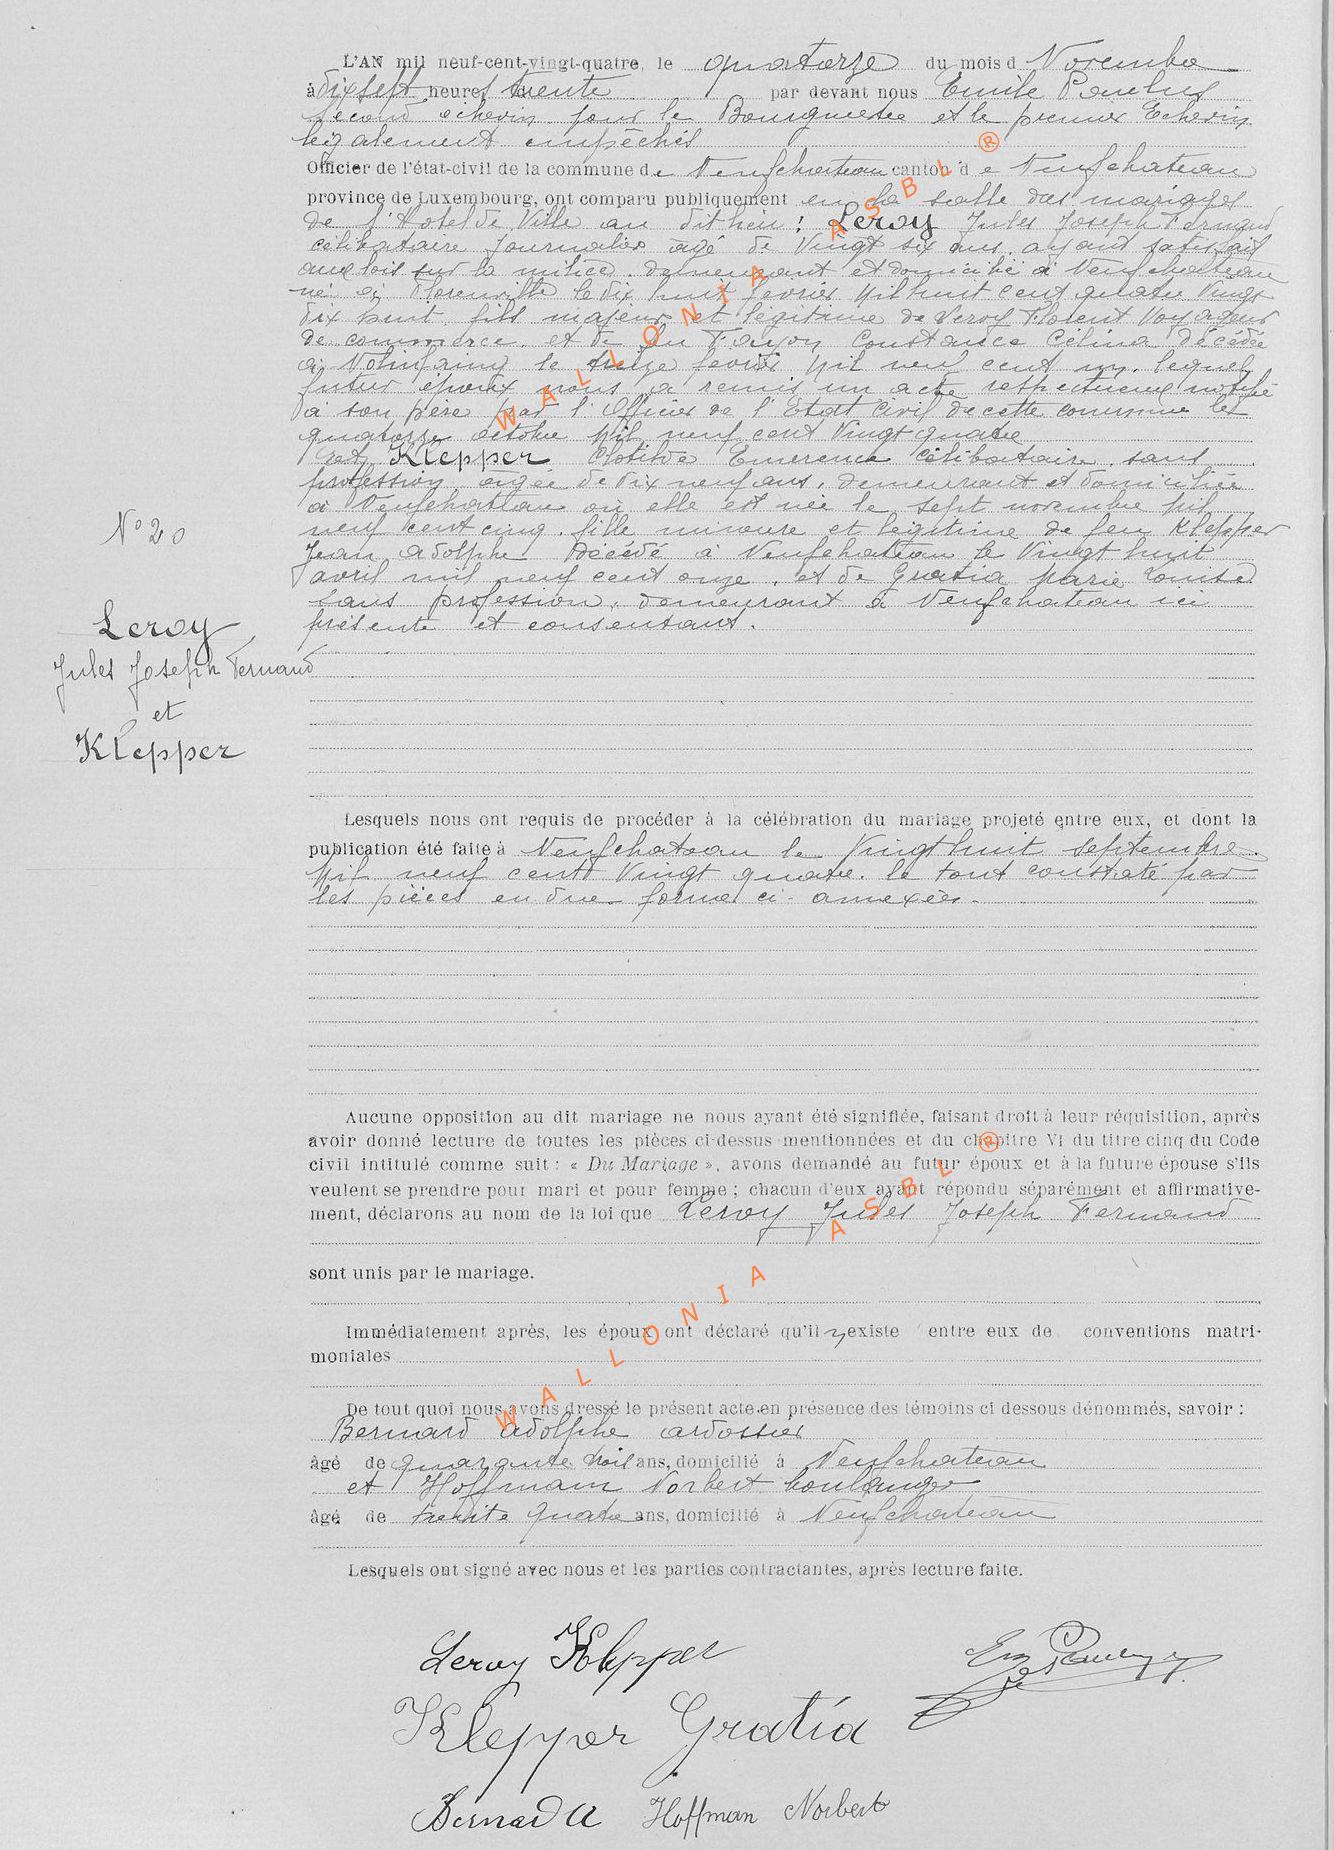 L'AN mil neuf-cent-vingt-quatre, le quatorze du mois d Novembre
à dix sept heures trente par devant nous Emile Paulus
second échevin pour le Bourgmestre et le premier Echevin
légalement empêchés
Officier de l'état-civil de la commune de Neufchateau canton de Neufchateau
province de Luxembourg, ont comparu publiquement en la salle des mariages
de l'Hotel de Ville au dit lieu : Leroy Jules Joseph Fernand
célibataire journalier agé de Vingt six ans, ayant satisfait
aux lois sur la milice, demeurant et domicilié à Neufchateau
né à Florenville le dix huit fevrier Mil huit cent quatre Vingt
dix huit, fils majeur et légitime de Leroy Florent Voyageur
de commerce, et de feu Fayon Constance Célina décédée
à le treize fevrier Mil neuf cent un, lequel
futur époux nous a remis un acte respectueux notifié
à son père par l'Officier de l'Etat Civil de cette commune le
quatorze octobre Mil neuf cent Vingt quatre
et Klepper Clotilde Emerence célibataire, sans
profession, agée de dix neuf ans, demeurant et domiciliée
à Neufchateau où elle est née le sept novembre Mil
neuf cent cinq, fille mineure et légitime de feu Klepper
Jean Adolphe décédé à Neufchateau le Vingt huit
avril mil neuf cent onze, et de Gratia Marie Louise
sans profession, demeurant à Neufchateau ici
présente et consentant.
N° 20
Leroy
Jules Joseph Fernand
et
Klepper
Lesquels nous ont requis de procéder à la célébration du mariage projeté entre eux, et dont la
publication été faite à Neufchateau le Vingt huit septembre
Mil neuf cent Vingt quatre. le tout constaté par
les pièces en due forme ci-annexées.
Aucune opposition au dit mariage ne nous ayant été signifiée, faisant droit à leur réquisition, après
avoir donné lecture de toutes les pièces ci-dessus mentionnées et du chapitre VI du titre cinq du Code
civil intitulé comme suit : « Du Mariage », avons demandé au futur époux et à la future épouse s'ils
veulent se prendre pour mari et pour femme ; chacun d'eux ayant répondu séparément et affirmative-
ment, déclarons au nom de la loi que Leroy Jules Joseph Fernand
sont unis par le mariage.
Immédiatement après, les époux ont déclaré qu'il n'existe entre eux de conventions matri-
moniales
De tout quoi nous avons dressé le présent acte en présence des témoins ci dessous dénommés, savoir :
Bernard Adolphe ardoisier
âgé de quarante trois ans, domicilié à Neufchateau
et Hoffmann Norbert boulanger
âgé de trente quatre ans, domicilié à Neufchateau
Lesquels ont signé avec nous et les parties contractantes, après lecture faite.
Leroy Klepper Em Paulus
Klepper Gratia
Bernard A Hoffman Norbert
WALLONIA ASBL ®
WALLONIA ASBL ®